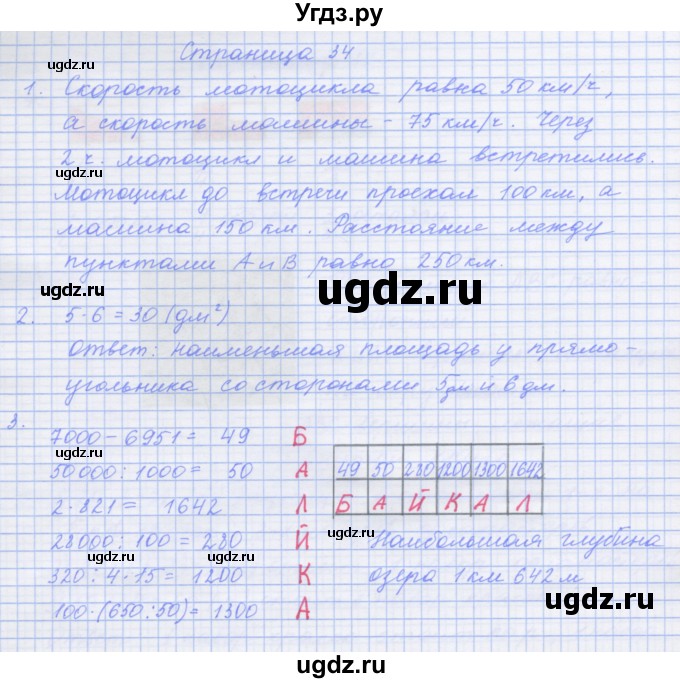 Угдз.ру
Страница 34
ugdz.ru
ugdz.ru
1. Скорость мотоцикла равна 50 км/ч,
а скорость машины – 75 км/ч. Через
2 ч. мотоцикл и машина встретились.
ugdz.ru
Мотоцикл до встречи проехал 100 км, а
машина 150 км. Расстояние между
пунктами А и В равно 250 км.
ugdz.ru
ugdz.ru
2. 5·6 = 30 (дм²)
Ответ: наименьшая площадь у прямо-
угольника со сторонами 5дм и 6 дм.
ugdz.ru
3.
7000 – 6951 = 49 Б
50 000 : 1000 = 50 А
49 50 280 1200 1300 1642
ugdz.ru
2 · 821 = 1642 Л
Б А Й К А Л
28000 : 100 = 280 Й
Наибольшая глубина
ugdz.ru
ugdz.ru
320 : 4 · 15 = 1200 К
озера 1 км 642 м
100 · (650 : 50) = 1300 А
ugdz.ru
ugdz.ru
ugdz.ru